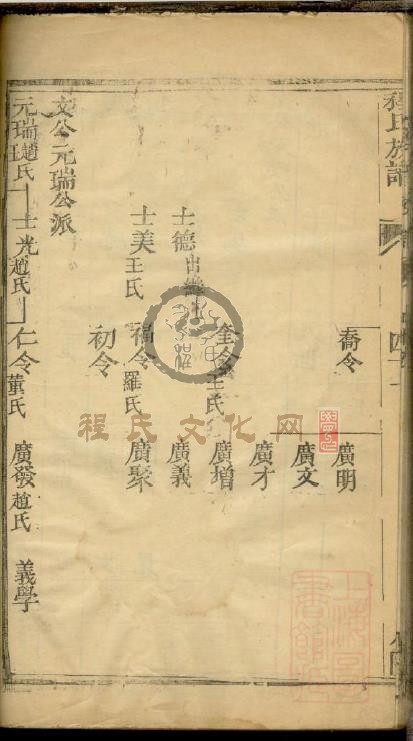 程氏族譜
喬令
廣明
廣文
廣才
奎令王氏
廣增
士德出繼
廣義
士美王氏
福令羅氏
廣聚
初令
文公元瑞公派
元瑞趙氏
士光趙氏
仁令董氏
廣發趙氏
義學
程氏文化网